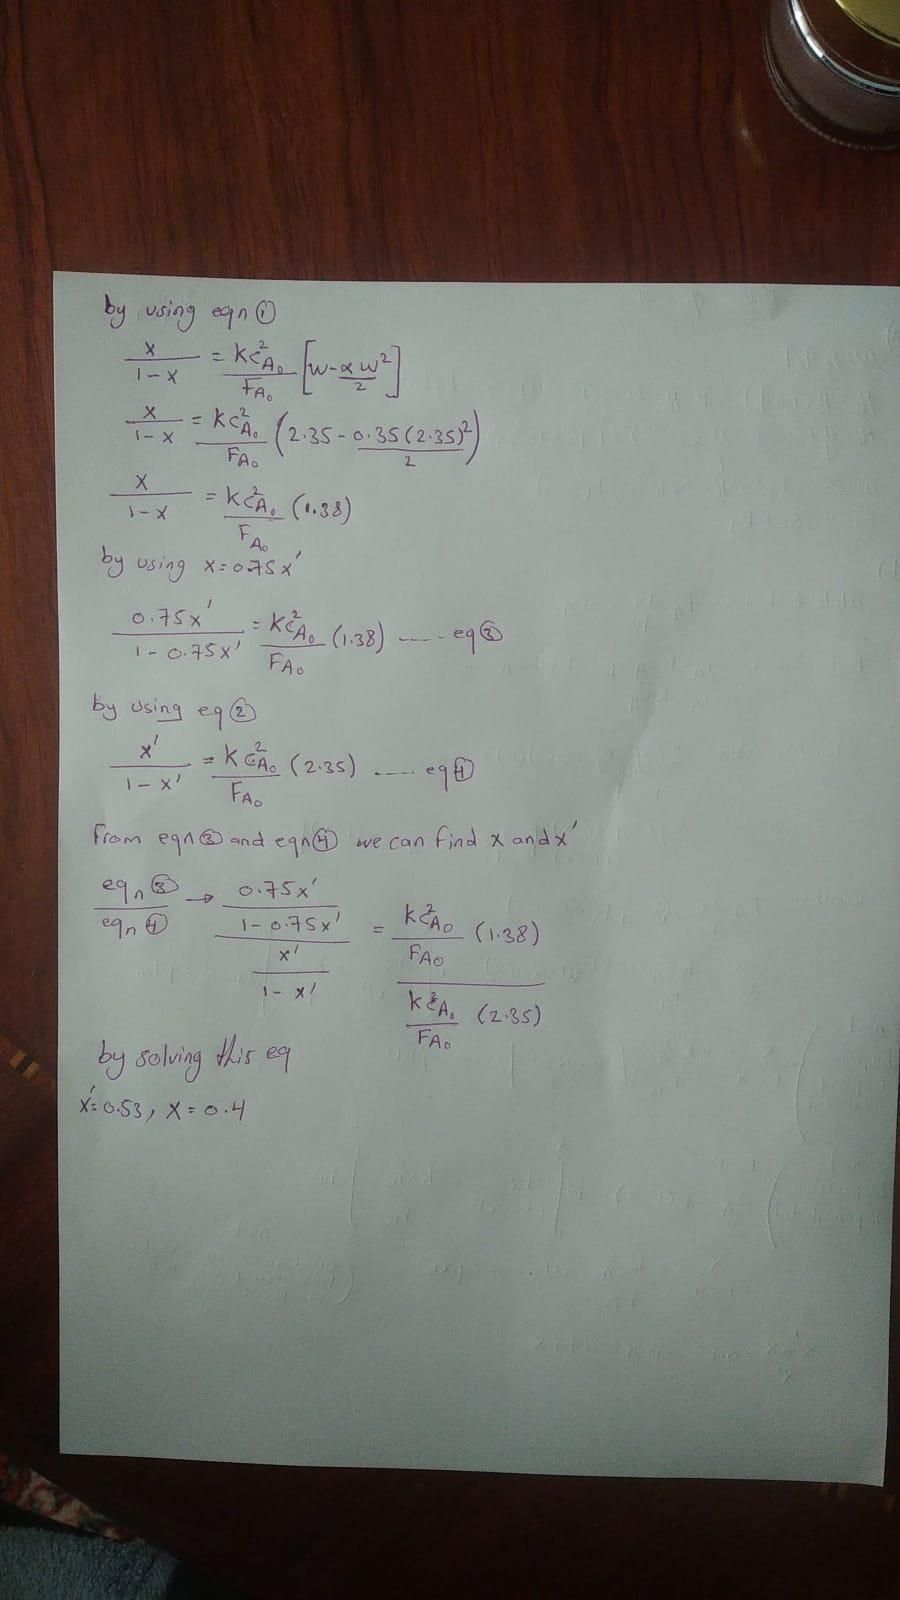 by using eqn ①
x/(1-x) = KC²A₀/FA₀ [w - αw²/2]
x/(1-x) = KC²A₀/FA₀ (2.35 - 0.35(2.35)²/2)
x/(1-x) = KC²A₀/FA₀ (1.38)
by using x=0.75x'
0.75x'/(1-0.75x') = KC²A₀/FA₀ (1.38) ---- eq ③
by using eq ②
x'/(1-x') = KC²A₀/FA₀ (2.35) ---- eq ④
From eqn ③ and eqn ④ we can find x and x'
eqn ③/eqn ④ → (0.75x'/(1-0.75x'))/(x'/(1-x')) = (KC²A₀/FA₀ (1.38))/(KC²A₀/FA₀ (2.35))
by solving this eq
x'=0.53, x=0.4